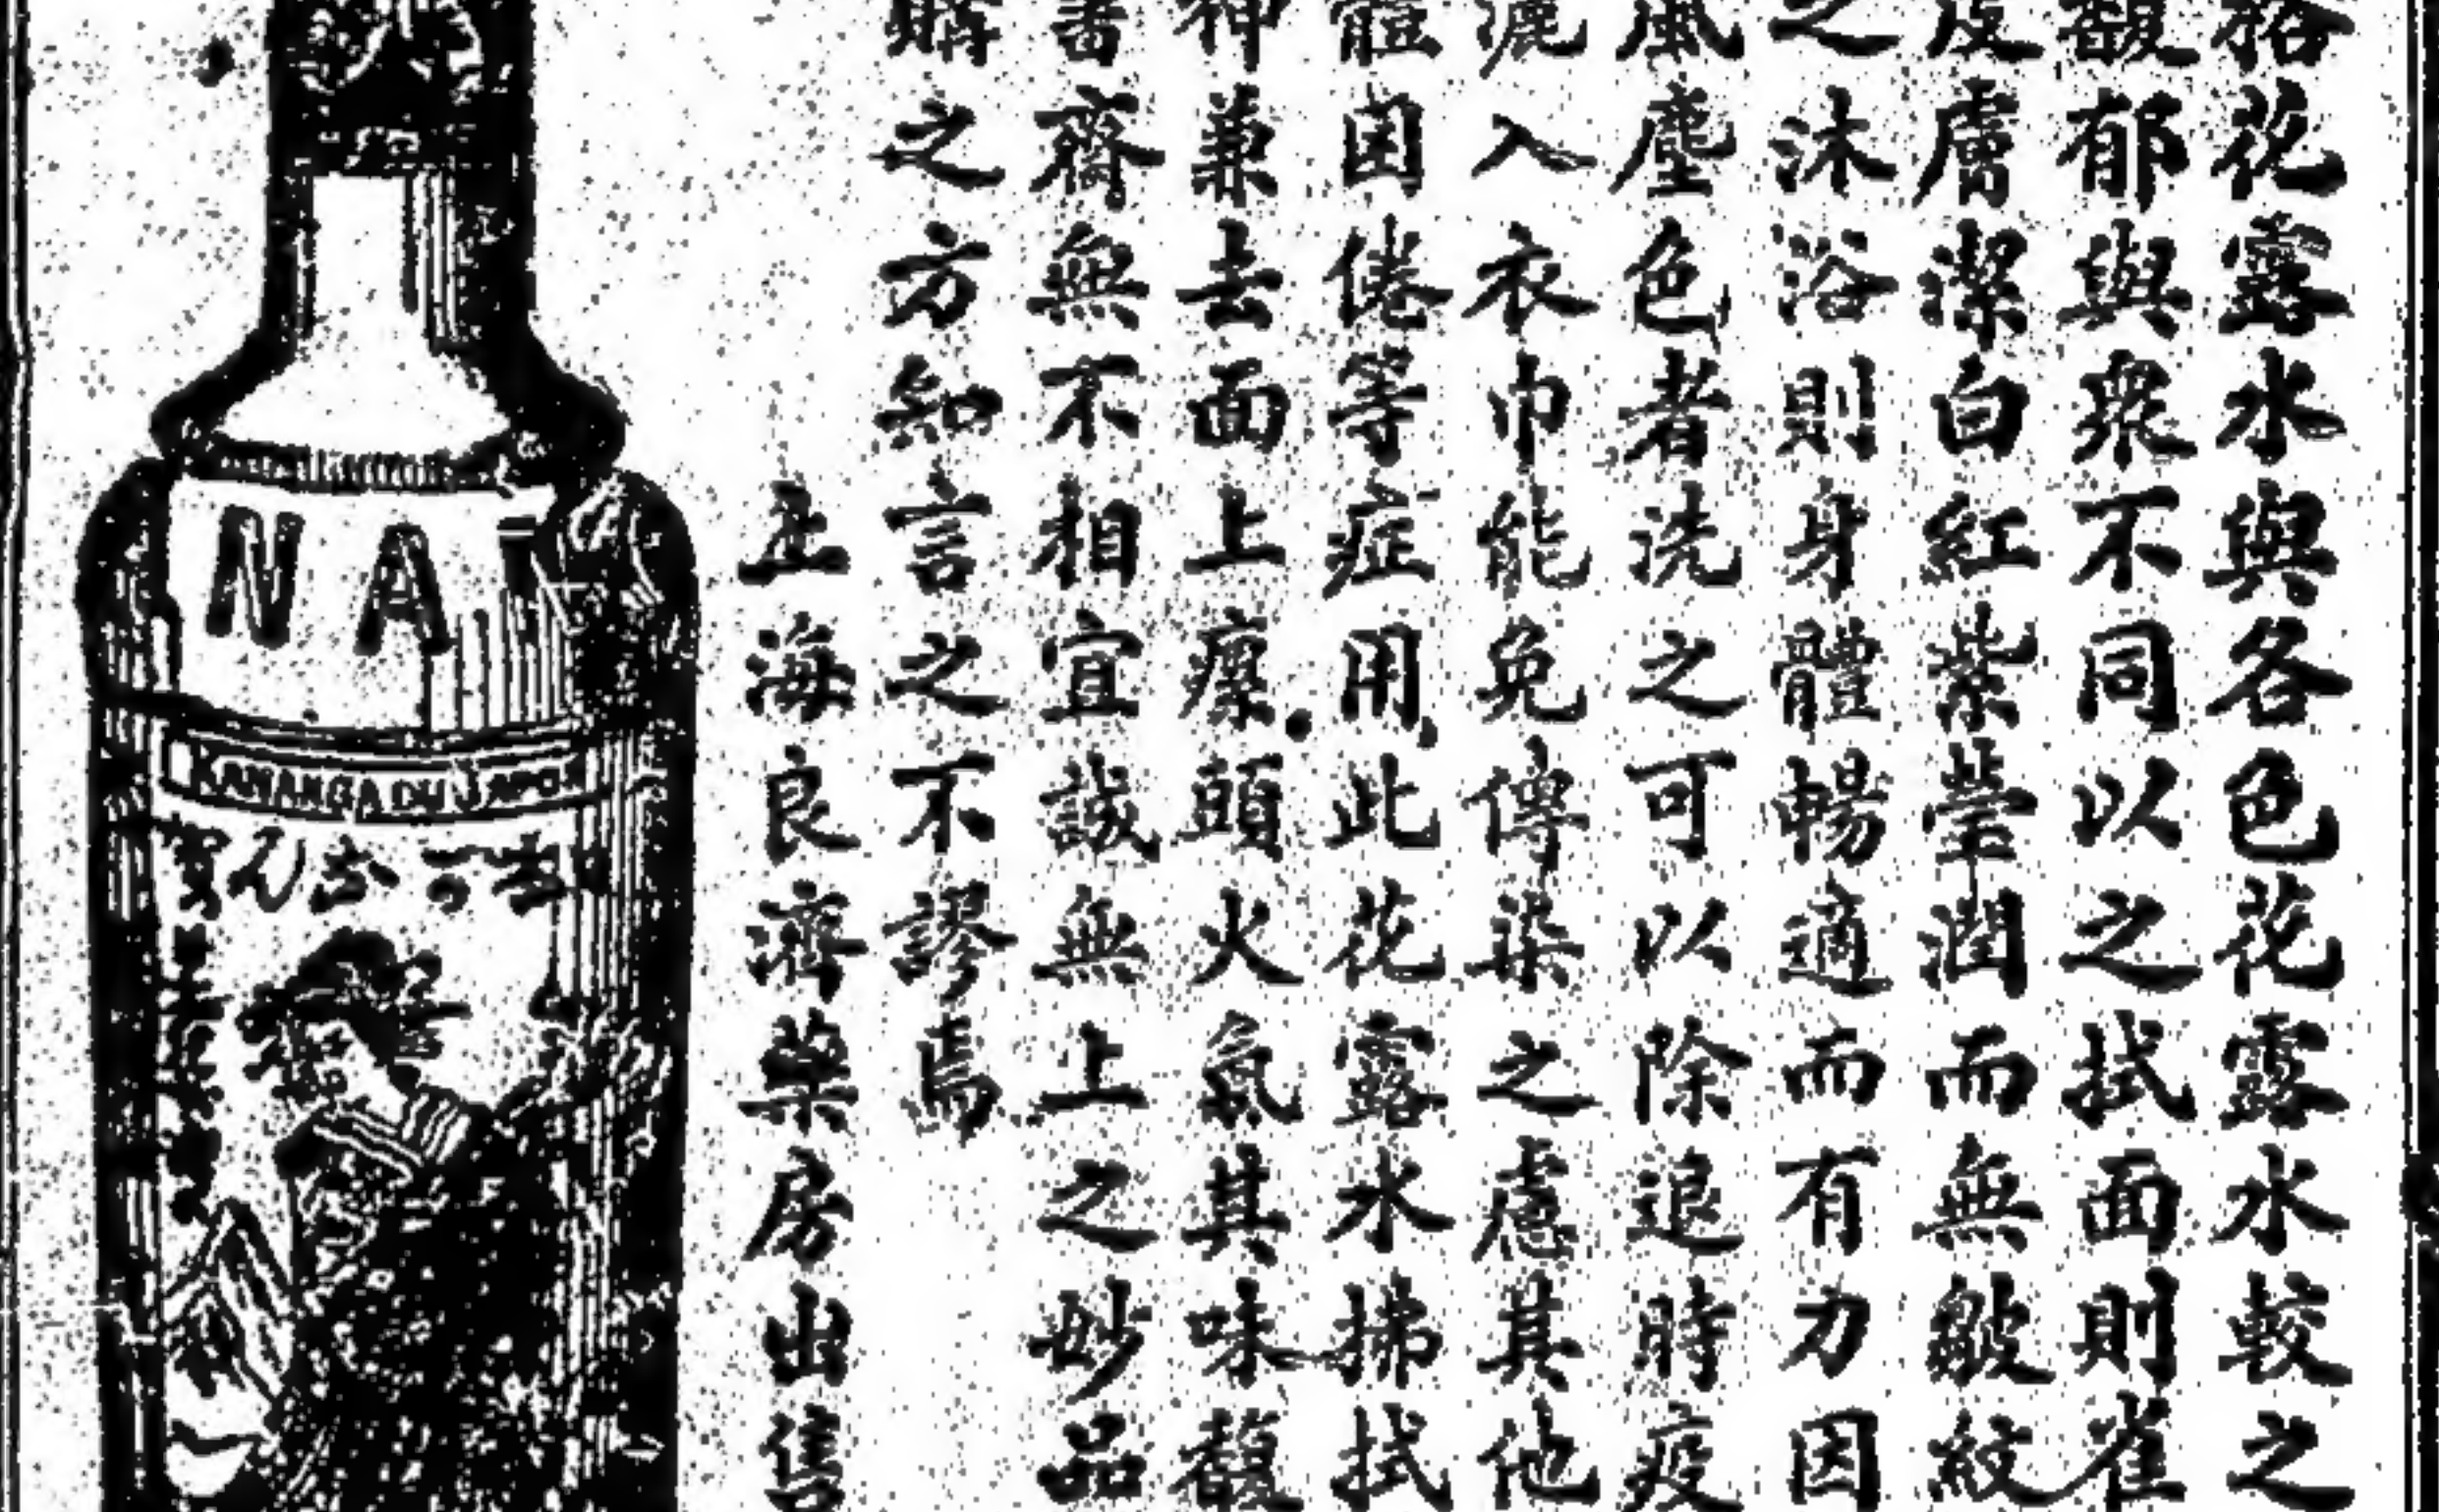 花露水與各色花露水較之
馥郁與衆不同以之拭面則雀
皮膚潔白紅紫瑩潤而無皺紋
之沐浴則身體暢適而有力因
風塵色者洗之可以除退時疫
灑入衣巾能免傳染之慮其他
體困倦等症用此花露水拂拭
神兼去面上瘰頭火氣其味馥
書齋無不相宜誠無上之妙品
購之方知言之不謬焉
上海良濟藥房出售
NA
KANANGA DU JAPON